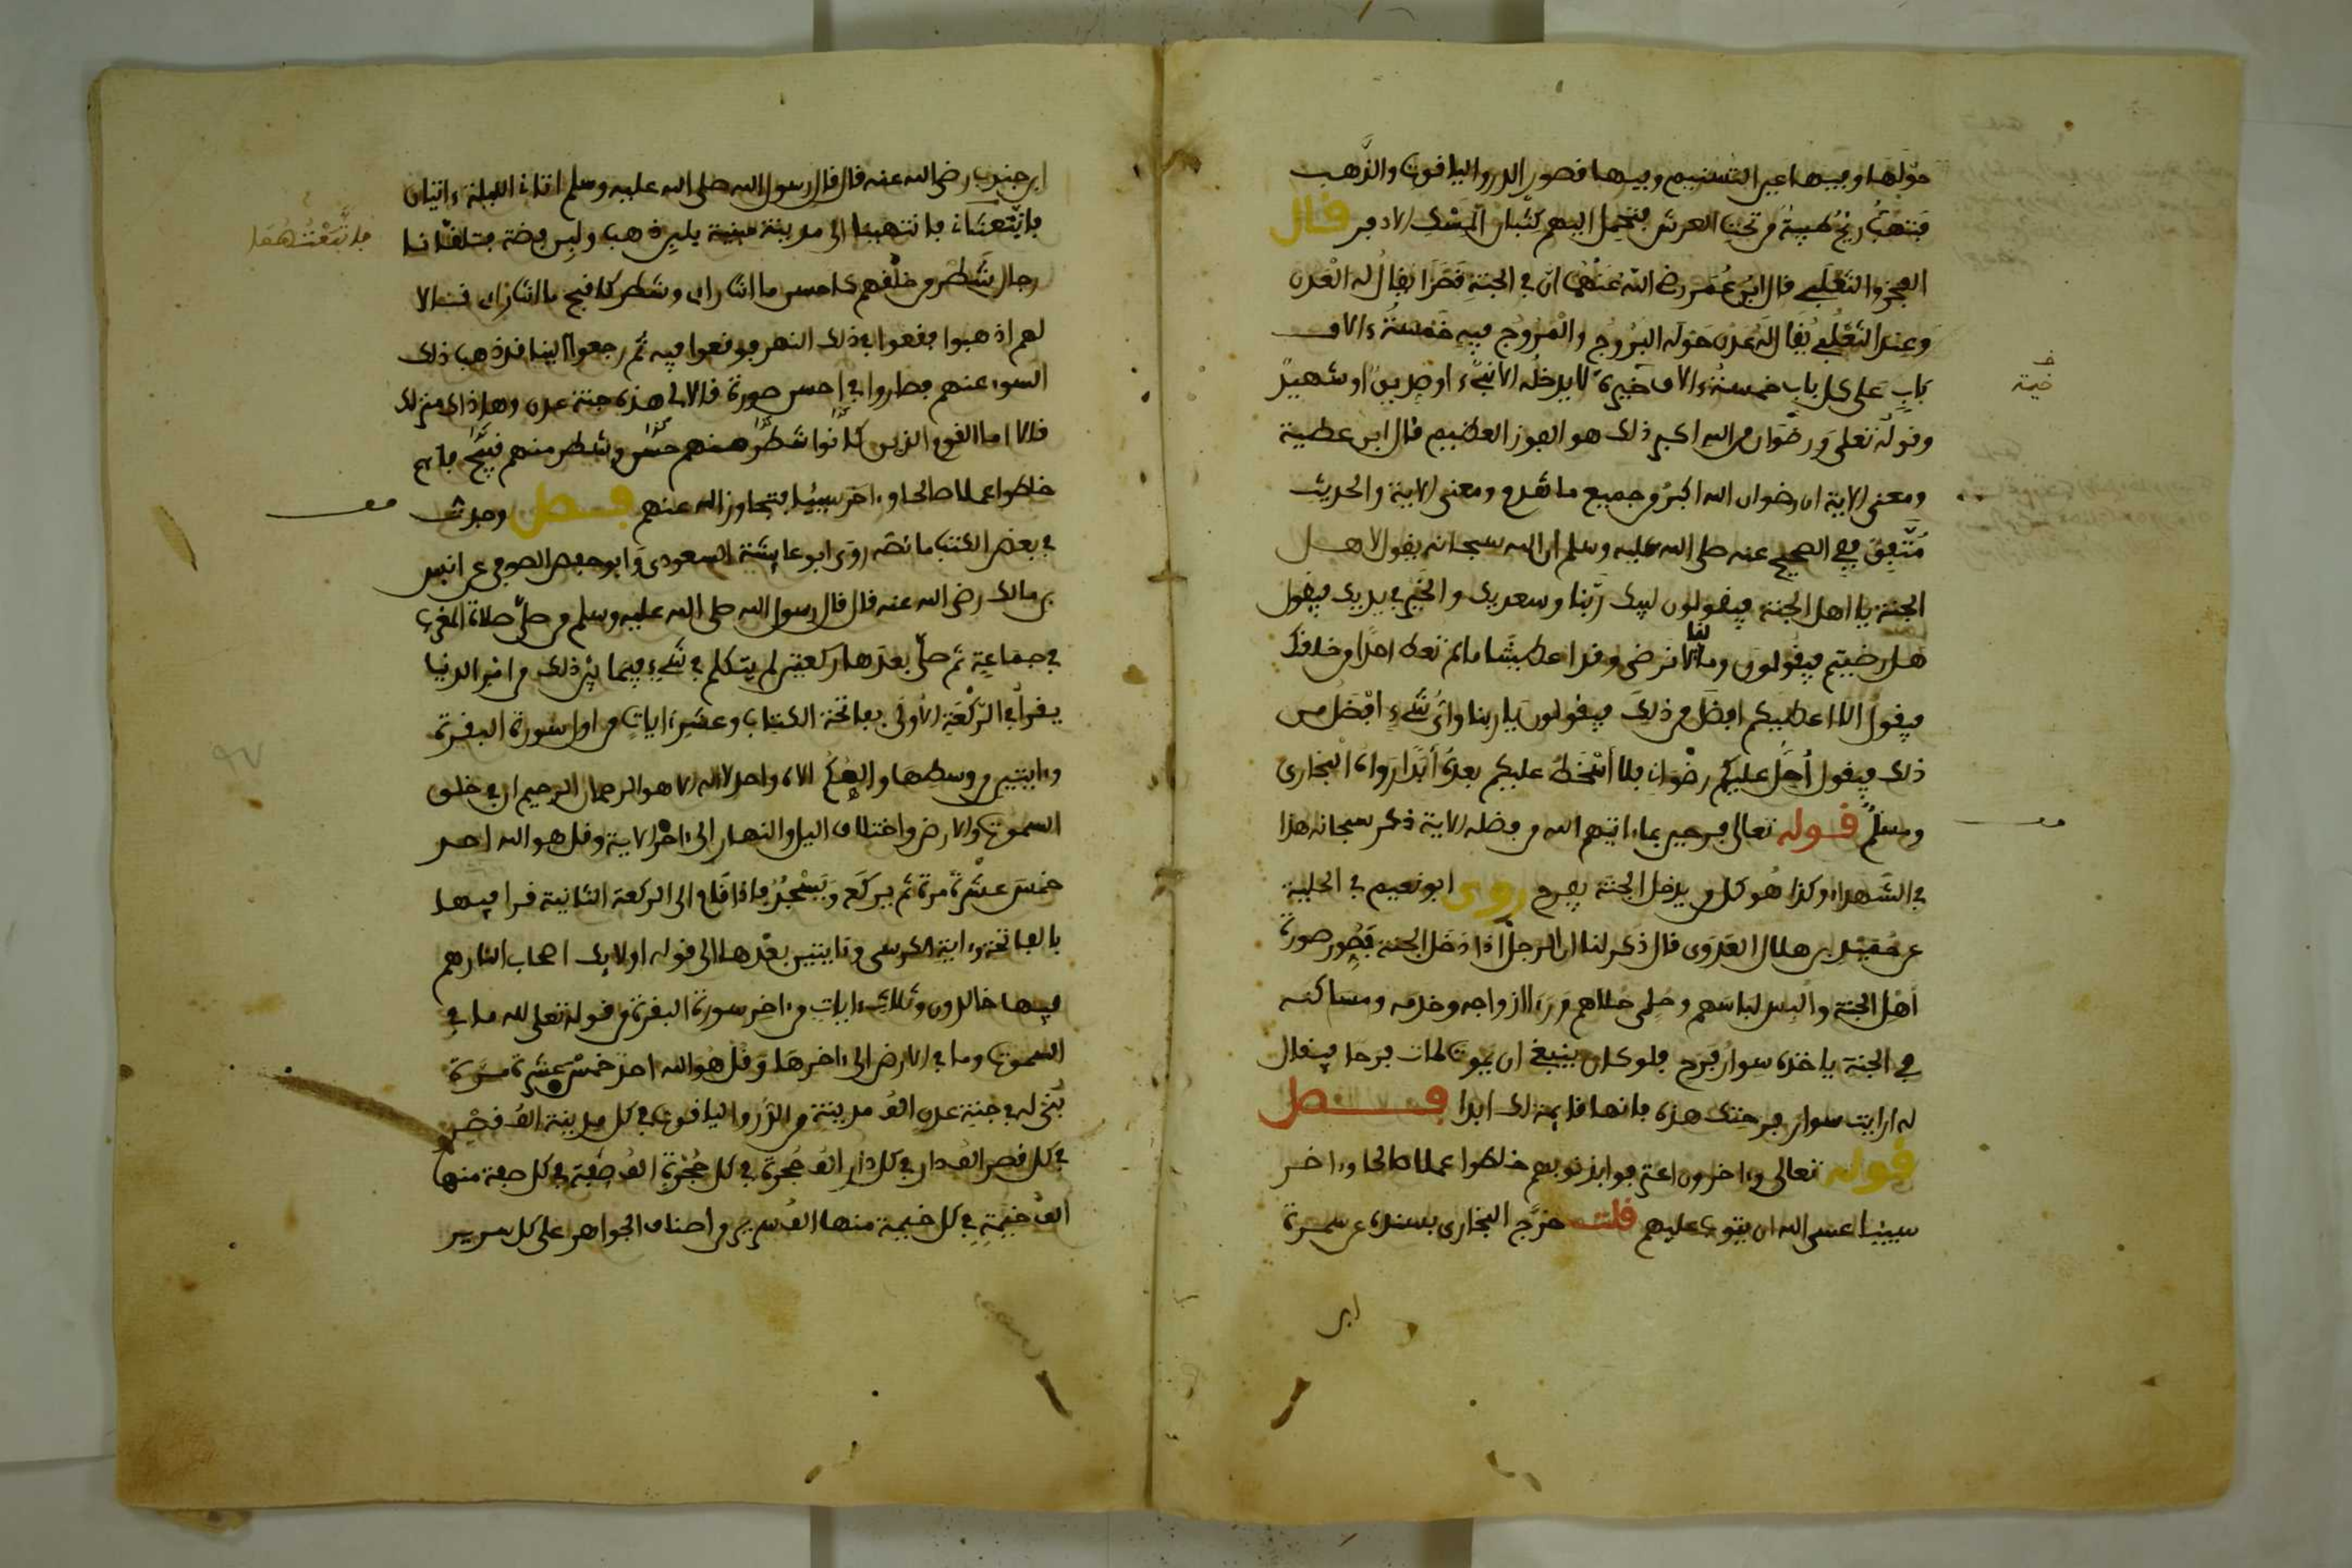 حوْلَها وفيها عين التسنيم وفيها قصور الدر والياقوت والذهب
فتهبُّ ريحٌ طيبةٌ من تحت العرش فتدخل اليهم كثبان المسك الاذفر قال
الفخر والثعلبي قال ابن عُمَر رضي الله عنهما ان في الجنة قصرًا يقال له العَدن
وعند الثعلبي يُقال له عدن حوله البُرُوجُ والمُرُوجُ فيه خمسةُ ءالاف
بابٍ على كل باب خمسة ءالاف خيرة لا يدخله الا نبيء او صديق او شهيد
وقوله تعلى ورضوان من الله اكبر ذلك هو الفوز العظيم قال ابن عطية
ومعنى الاية ان رضوان الله اكبرُ من جميع ما تقدم ومعنى الاية والحديث
مُتّفِقٌ ففي الصحيح عنه صلى الله عليه وسلم ان الله سبحانه يقول لاهل
الجنة يا اهل الجنة فيقولون لبيك ربّنا وسعديك والخير في يديك فيقول
هل رضيتم فيقُولون وما لنا لا نرضى وقد اعطيتنا ما لم تعط احدًا من خلقك
فيقولُ الا اعطيكم افضل من ذلك فيقولون يا ربنا وأيُّ شيءٍ افضل من
ذلك فيقول أُحِلُّ عليكم رضْوانِي فلا أَسْخَطُ عليكم بعدهُ أبدًا رواه البخارى
ومسلمٌ قوله تعالى فرحين بما ءاتيهم الله من فضله الاية ذكر سبحانه هذا
في الشهداء وكذا هُو كل من يدخل الجنة يفرح روى ابو نعيم في الحلية
عن مُفضَّل بن هلال العَدَوى قال ذُكر لنا ان الرجل اذا دَخَل الجنة فَصُوِّر صورة
أهْل الجنة والبِس لباسهم وحُلى حُلاهم ورَءا ازواجه وخدمه ومساكنه
في الجنة ياخذه سوارُ فرح فلو كان ينبغي ان يموت لمات فرحا فيقال
له ارايت سوار فرحتك هذه فانها قايمة لك ابدا فصل
قوله تعالى وءاخرون اعترفوا بذنوبهم خلطوا عملا صالحا وءاخر
سييئا عسى الله ان يتوب عليهم قلت خرّج البخارى بسنده عن سمرة
ابن
خـ
خيمة
ابن جندب رضي الله عنه قال قال رسول الله صلى الله عليه وسلم اتاني الليلة ءاتيان
فابْتَعثاني فانتهينا الى مدينة مبنية بلبن ذهب ولبن فضة فتلقّانا
رجال شَطْر من خلْقهم كاحسن ما انت راى وشطر كاقبح ما انت راى قالا
لهم اذهبوا فقعوا في ذلك النهر فوقعوا فيه ثم رجعوا الينا قد ذهب ذلك
السوء عنهم فصاروا في أحسن صورة قالا لي هذه جنة عدن وهذاك منزلك
قالا اما القوم الذين كانوا شطرٌ منهم حسنٌ وشطر منهم قبيح فانهم
خلطوا عملا صالحا وءاخر سييئا فتجاوز الله عنهم فصل وجدت
في بعض الكتب ما نصّه روى ابو عايشة السعودى وابو حفص الصوفى عن انس
بن مالك رضي الله عنه قال قال رسول الله صلى الله عليه وسلم من صلّى صلاة المغرب
في جماعةٍ ثم صلّى بعدها ركعتين لم يتكلم في شيءٍ فيما بين ذلك من امر الدنيا
يقرأ في الرّكْعَة الأولى بفاتحة الكتاب وعشر ءاياتٍ من اول سورة البقرة
وءايتين من وسطها والهُكم الاه واحد لا اله الا هو الرحمان الرحيم ان في خلق
السموات والارض واختلاف اليل والنهار الى ءاخر الاية وقل هو الله احد
خمسَ عشْرةَ مرة ثم يركَع ويَسْجُدُ فاذا قام الى الركعة الثانية قرا فيها
بالفاتحة وءاية الكرسى وءايتين بعْدها الى قوله اولايك اصحاب النار هم
فيها خالدون وثلاث ءاياتٍ من ءاخر سورة البقرة من قوله تعلى لله ما في
السموات وما في الارض الى ءاخرها وقل هو الله احد خمسَ عشرة مرة
بُنَى له في جنة عدن الفُ مدينة من الدُّر والياقوت في كل مدينة الفُ قصْر
في كل قصر الف دار في كل دار الفُ حُجرة في كل حُجْرةٍ الفُ صُفة في كل صفة منها
الفُ خيمَةٍ في كل خيمة منها الفُ سرير من اصناف الجواهر على كل سرير